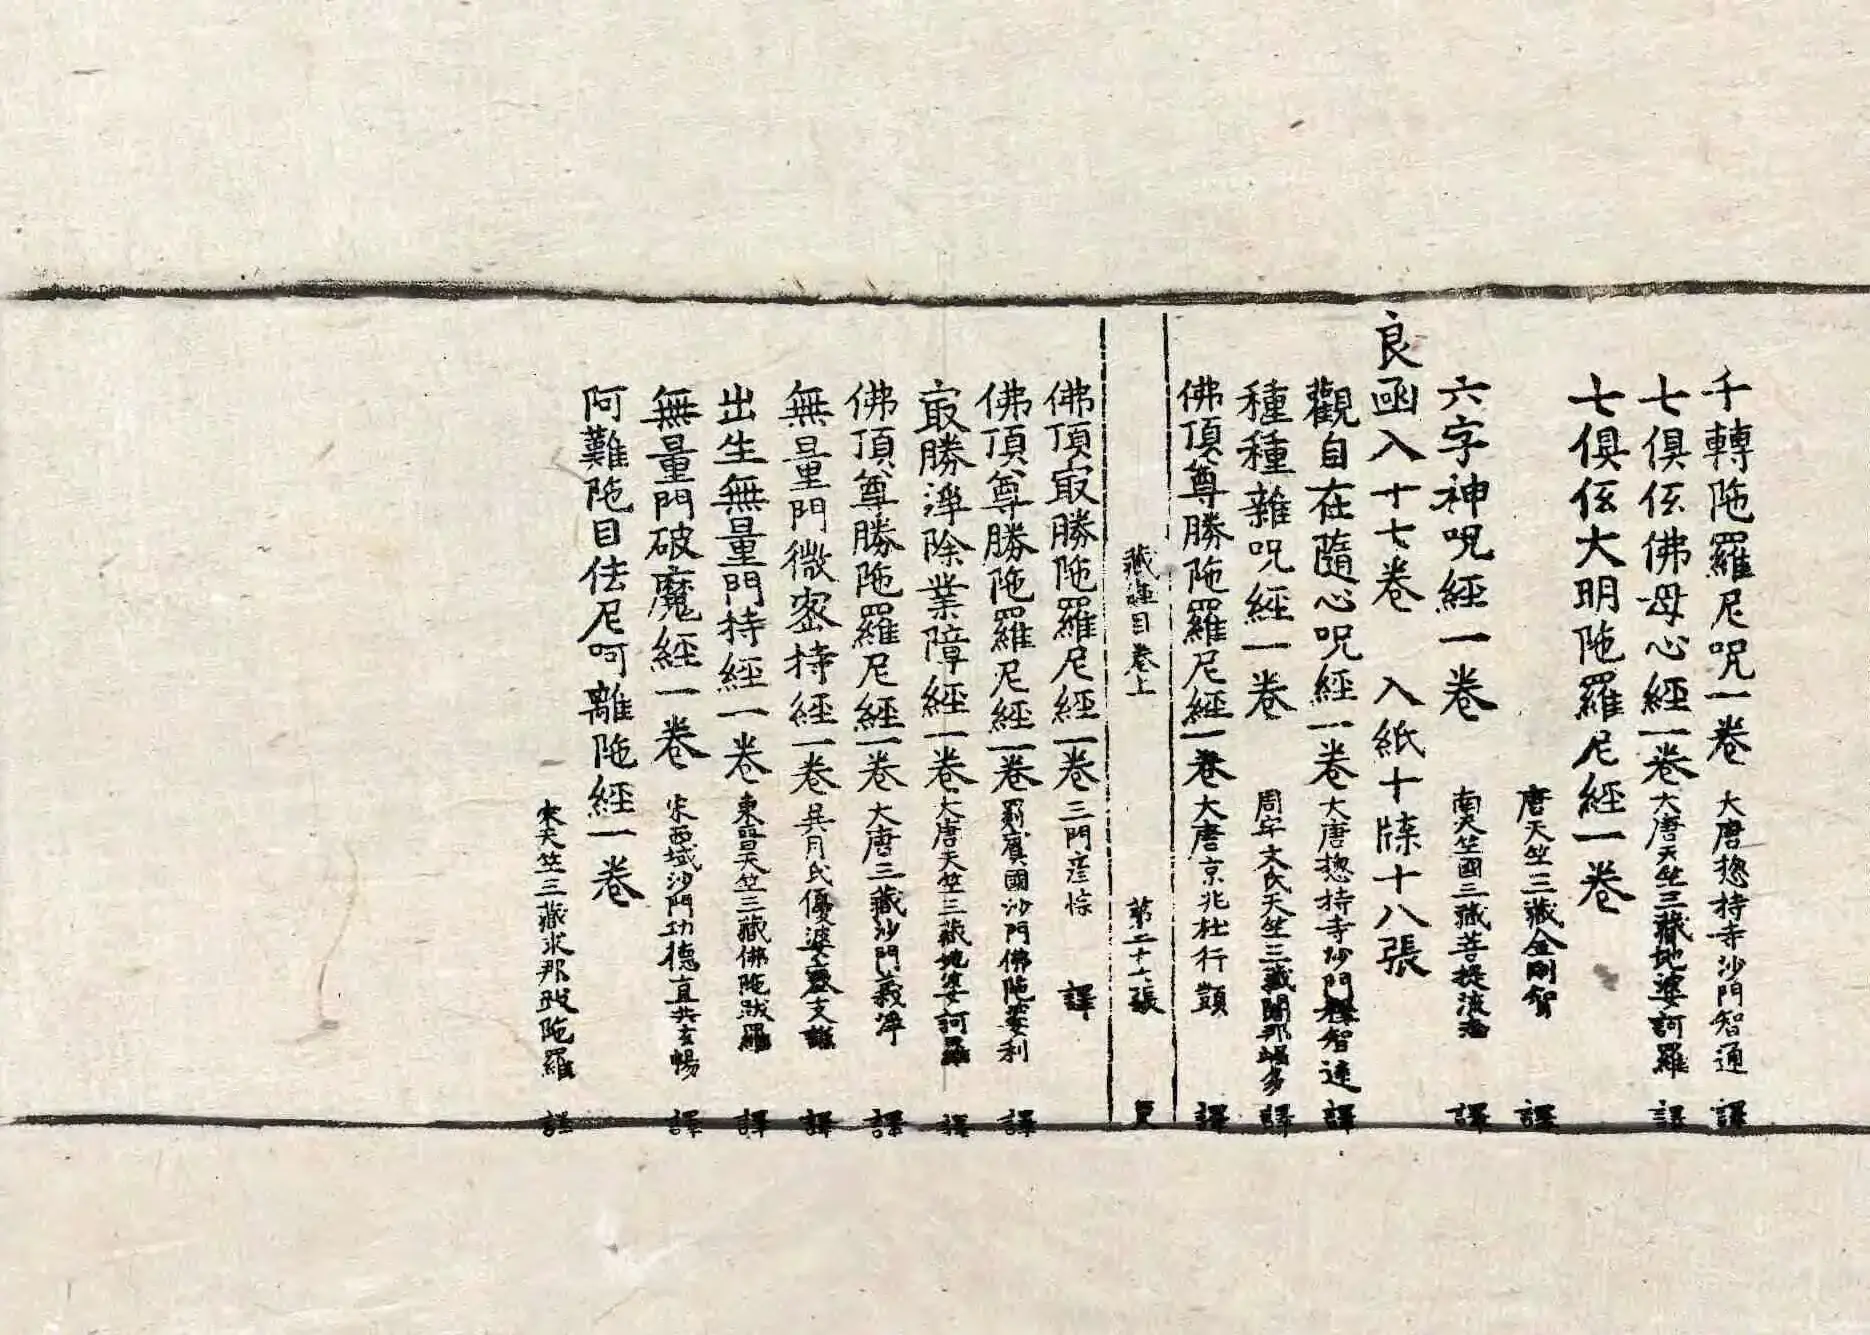 千轉陁羅尼呪一卷 大唐揔持寺沙門智通 譯
七俱胝佛母心經一卷 大唐天竺三藏地婆訶羅 譯
七俱胝大明陁羅尼經一卷
唐天竺三藏金剛智 譯
六字神呪經一卷 南天竺國三藏菩提流志 譯
良函入十七卷 入紙十牒十八張
觀自在隨心呪經一卷 大唐揔持寺沙門釋智通 譯
種種雜呪經一卷 周宇文氏天竺三藏闍那崛多 譯
佛頂尊勝陁羅尼經一卷 大唐京兆杜行顗 譯
藏逕目卷上 第二十六張 良
佛頂冣勝陁羅尼經一卷 三門彥悰 譯
佛頂尊勝陁羅尼經一卷 罽賓國沙門佛陁婆利 譯
冣勝淨除業障經一卷 大唐天竺三藏地婆訶羅 譯
佛頂尊勝陁羅尼經一卷 大唐三藏沙門義淨 譯
無量門微密持經一卷 吳月氏優婆塞支謙 譯
出生無量門持經一卷 東晉天竺三藏佛陁跋羅 譯
無量門破魔經一卷 宋西域沙門功德直共玄暢 譯
阿難陁目佉尼呵離陁經一卷
宋天竺三藏求那跋陁羅 譯